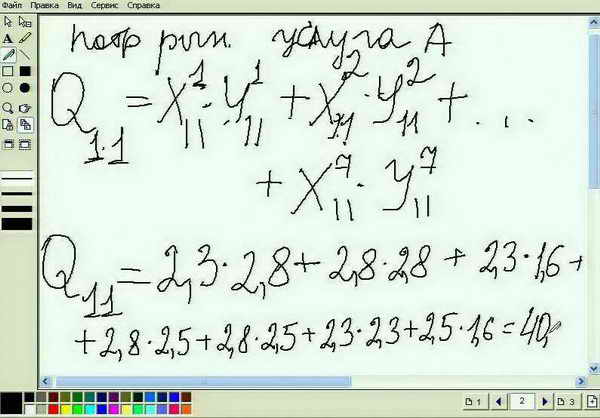 Файл Правка Вид Сервис Справка
потр рын. услуга А
Q₁.₁ = X¹₁₁ · Y¹₁₁ + X²₁₁ · Y²₁₁ + ...
+ X⁷₁₁ · Y⁷₁₁
Q₁₁ = 2,3 · 2,8 + 2,8 · 2,8 + 2,3 · 1,6 +
+ 2,8 · 2,5 + 2,8 · 2,5 + 2,3 · 2,3 + 2,5 · 1,6 = 40,
1 2 3